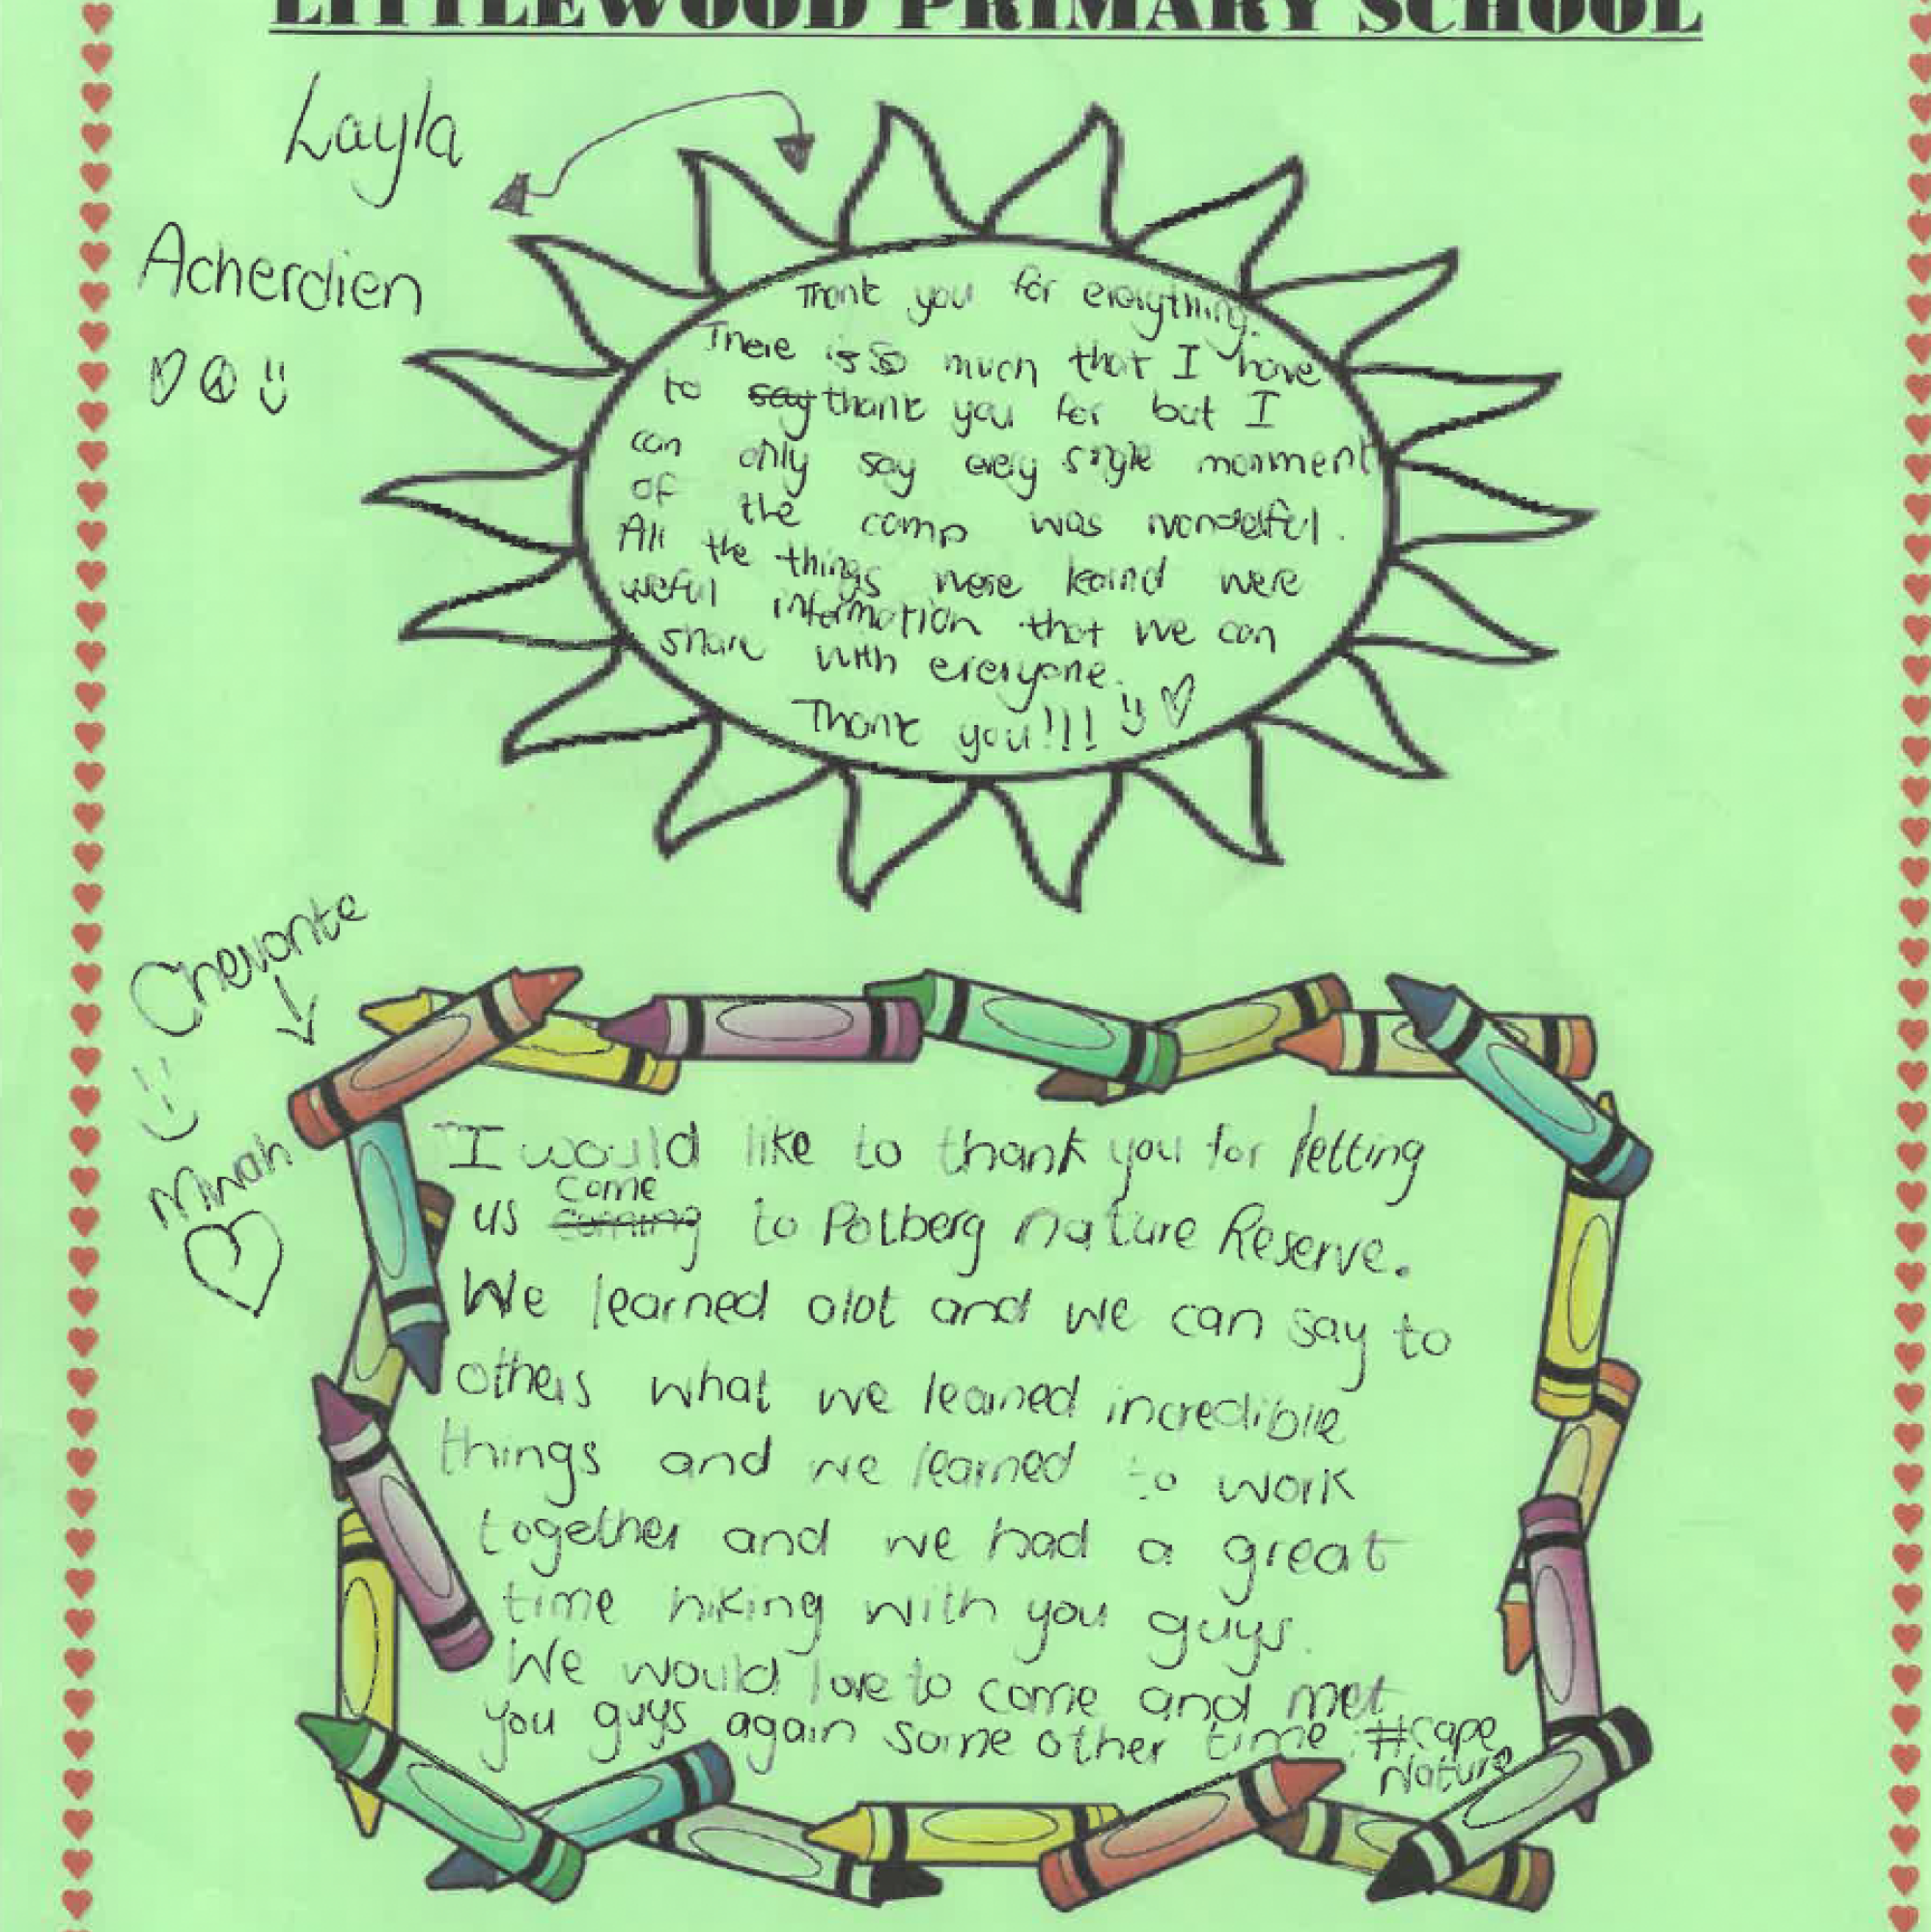 LITTLEWOOD PRIMARY SCHOOL
Layla
Acherdien
Thank you for everything.
There is so much that I have
to say thank you for but I
can only say every single monment
of the camp was wonderful.
All the things were learnd were
useful information that we can
share with everyone.
Thank you!!!
Chevonte
Minah
I would like to thank you for letting
come
us coming to Potberg nature Reserve.
We learned alot and we can say to
others what we learned incredibile
things and we learned to work
together and we had a great
time hiking with you guys.
We would love to come and met
you guys again some other time. #cape
Nature